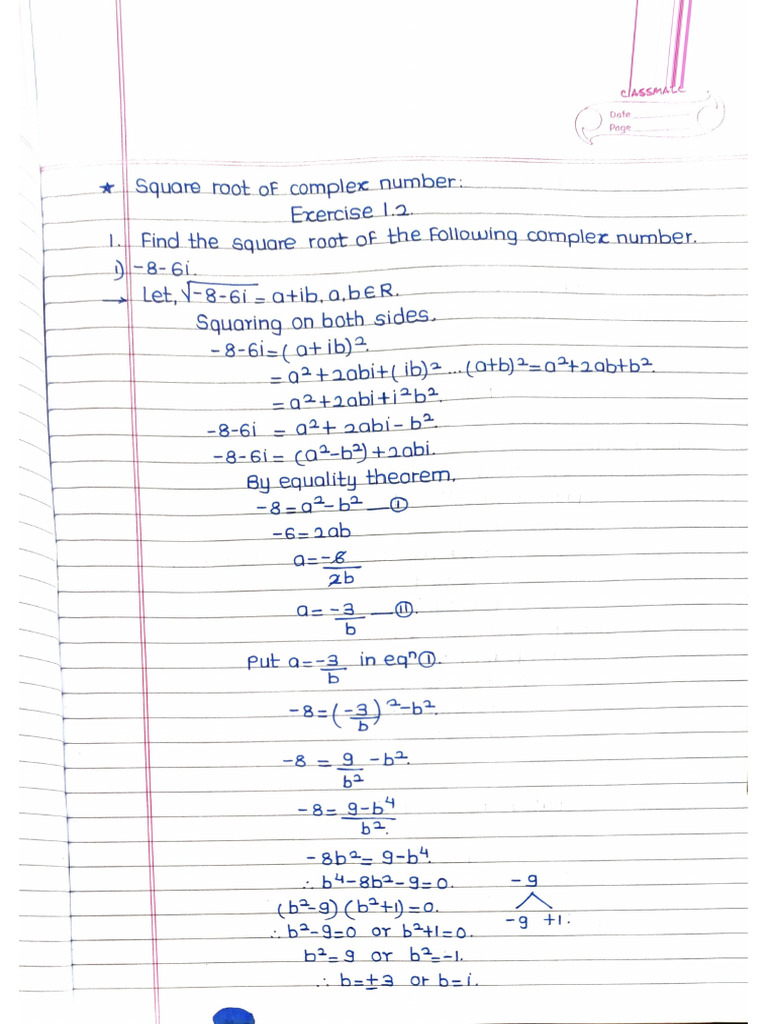 CLASSMATE
Date
Page
★ Square root of complex number:
Exercise 1.2.
1. Find the square root of the following complex number.
i) -8-6i.
→ Let, √-8-6i = a+ib, a,b∈R.
Squaring on both sides.
-8-6i=(a+ib)².
= a²+2abi+(ib)² ...(a+b)²=a²+2ab+b².
= a²+2abi+i²b².
-8-6i = a²+2abi-b².
-8-6i = (a²-b²)+2abi.
By equality theorem,
-8=a²-b² — ①
-6=2ab
a=-6/2b
a=-3/b — ⑪.
Put a=-3/b in eqⁿ①.
-8=(-3/b)²-b².
-8 = 9/b² -b².
-8= 9-b⁴/b².
-8b²= 9-b⁴.
∴ b⁴-8b²-9=0. -9
(b²-9)(b²+1)=0. -9 +1.
∴ b²-9=0 or b²+1=0.
b²=9 or b²=-1.
∴ b=±3 or b=i.